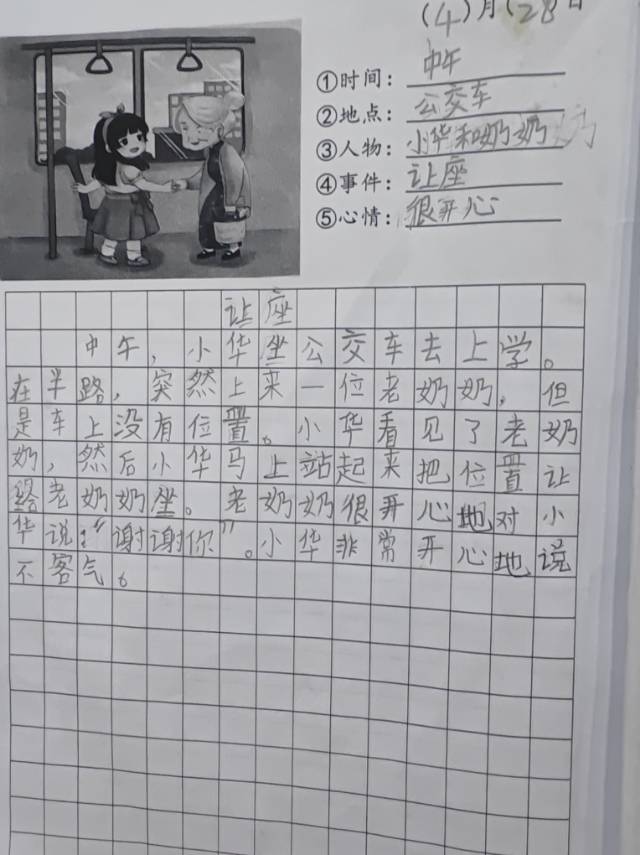 (4)月(28日
①时间：中午
②地点：公交车
③人物：小华和奶奶
④事件：让座
⑤心情：很开心
让座
中午，小华坐公交车去上学。
在半路，突然上来一位老奶奶，但
是车上没有位置。小华看见了老奶
奶，然后小华马上站起来把位置让
给老奶奶坐。老奶奶很开心地对小
华说：“谢谢你”。小华非常开心地说
不客气。